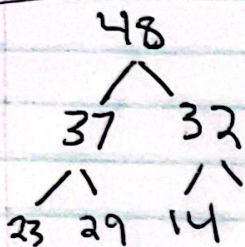 48
37 32
23 29 14